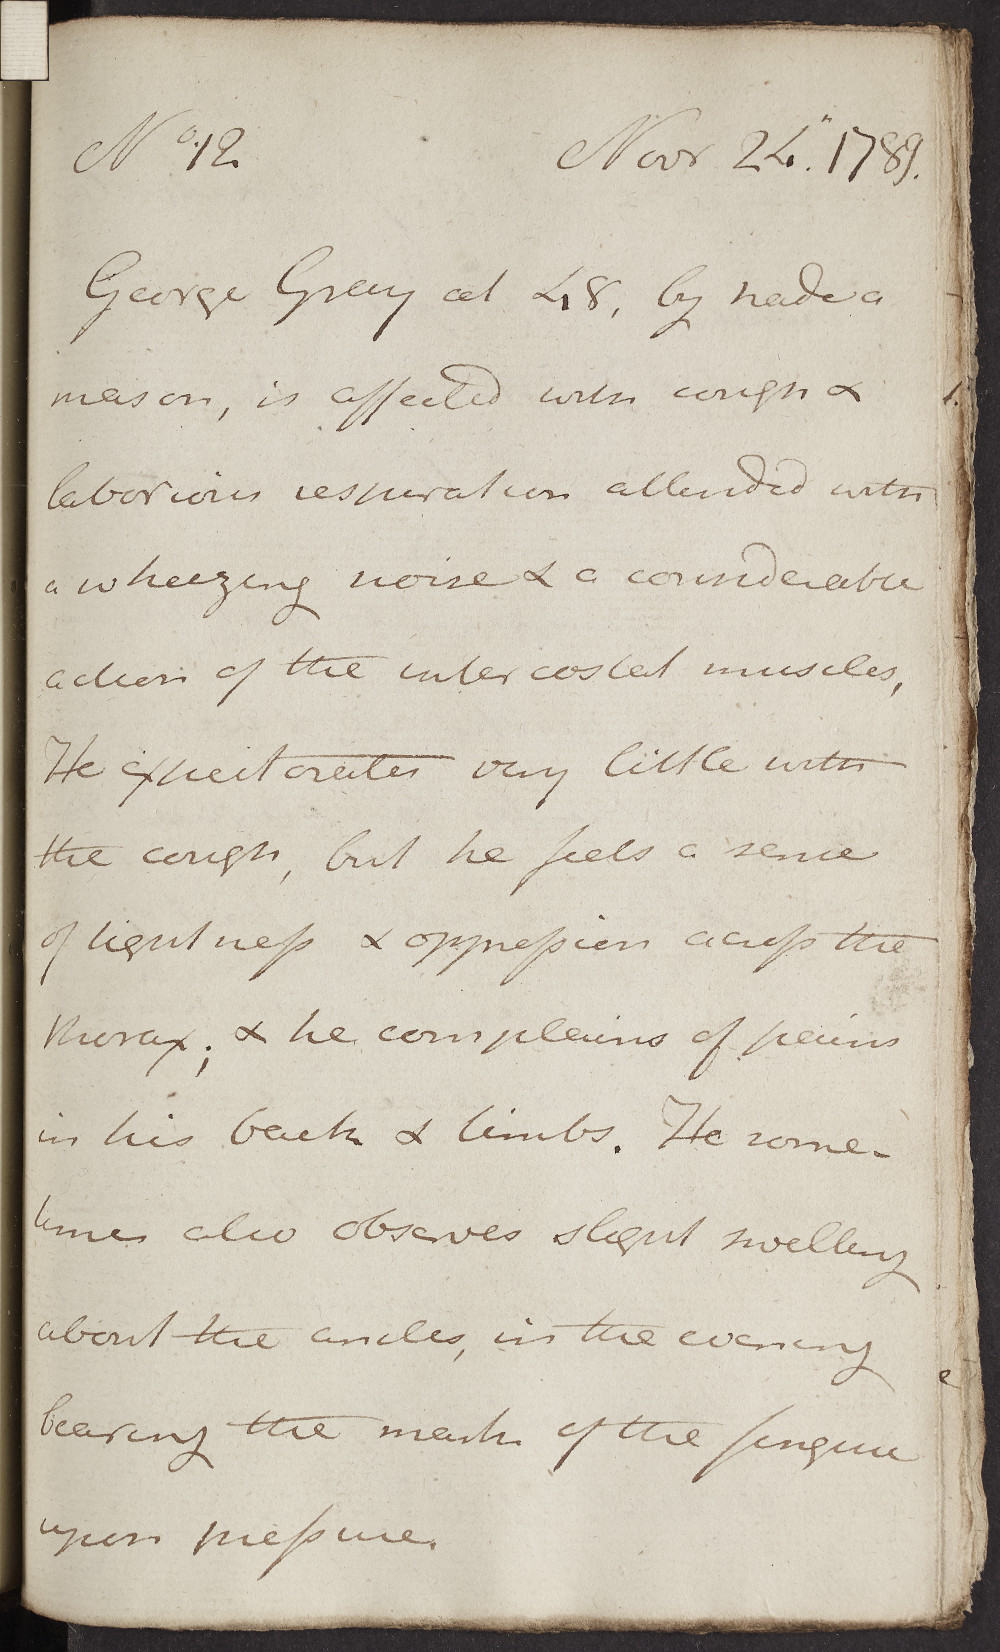 No. 12 Novr 24". 1789.
George Gray aet 48, by trade a
mason, is affected with cough &
laborious respiration attended with
a wheezing noise & a considerable
action of the intercostal muscles,
He expectorates very little with
the cough, but he feels a sense
of tightness & oppression across the
thorax; & he complains of pains
in his back & limbs. He some-
times also observes slight swelling
about the ancles, in the evening
bearing the mark of the finger
upon pressure.